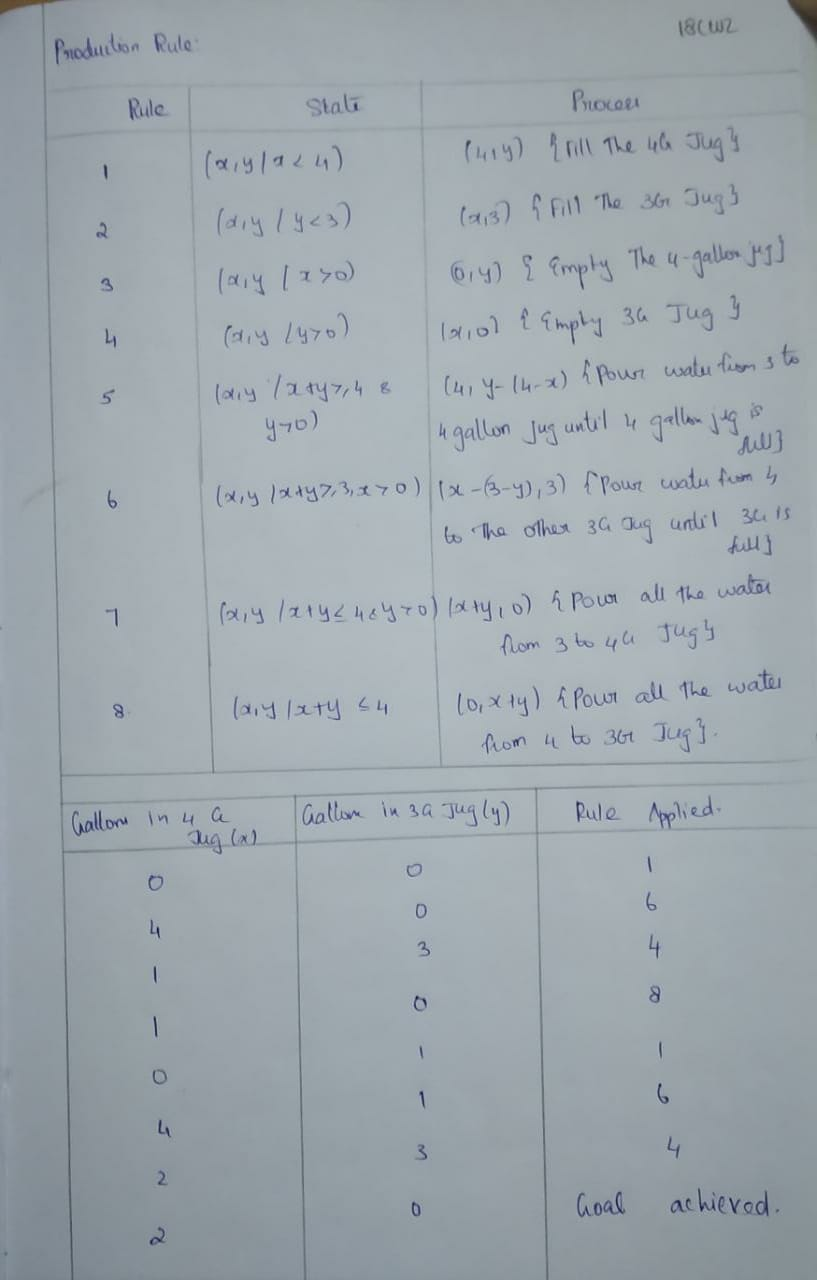 18CW2
Production Rule:
Rule State Process
1 (x,y/x<4) (4,y) {Fill The 4G Jug}
2 (x,y/y<3) (x,3) {Fill The 3G Jug}
3 (x,y/x>0) (0,y) {Empty The 4-gallon jug}
4 (x,y/y>0) (x,0) {Empty 3G Jug}
5 (x,y/x+y≥4 & (4, y-(4-x) {Pour water from 3 to
y>0) 4 gallon jug until 4 gallon jug is
full}
6 (x,y/x+y≥3,x>0) (x-(3-y),3) {Pour water from 4
to The other 3G Jug until 3G is
full}
7 (x,y/x+y≤4&y>0) (x+y,0) {Pour all the water
from 3 to 4G Jug}
8. (x,y/x+y≤4 (0,x+y) {Pour all The water
from 4 to 3G Jug}.
Gallons in 4 G Gallons in 3G Jug(y) Rule Applied.
Jug(x)
0 0 1
4 0 6
1 3 4
1 0 8
0 1 1
4 1 6
2 3 4
2 0 Goal achieved.